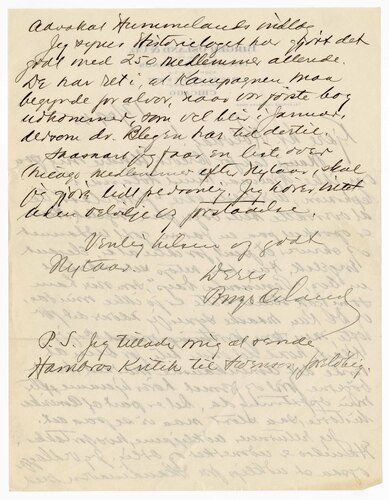 Advokat Hummelands indlæg.
Jeg synes Historielaget har gjort det
godt med 250 medlemmer allerede.
De har ret i, at Kampagnen maa
begynde for alvor, naar vor første bog
udkommer, som vel blir i Januar,
dersom dr. Blegen har tid dertil.
Saasnart jeg faar en liste over
Chicago medlemmer efter Nytaar, skal
jeg gjøre lidt personlig.
uden velvilje og forstaaelse.
Venlig hilsen og godt
Nytaar.
Deres
Birger Osland
P.S. Jeg tillader mig at sende
Hambros Kritik til Svenson, foreløbig.